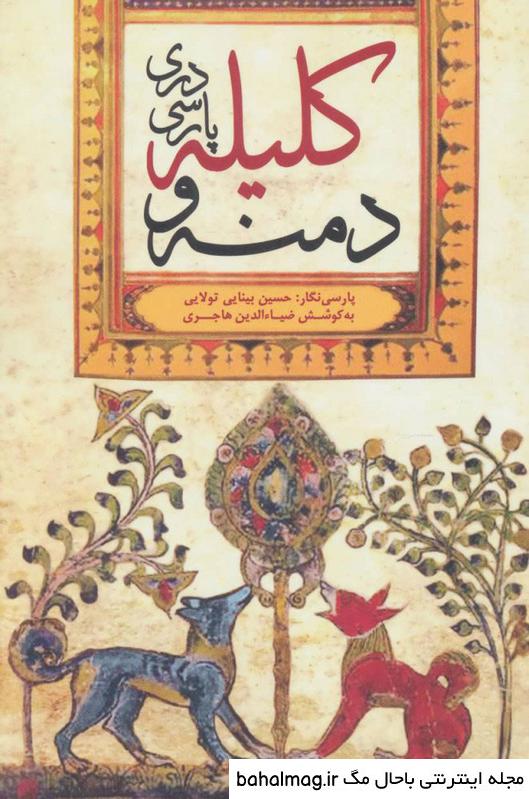 کلیله
و دمنه
پارسی دری
پارسی‌نگار: حسین بینایی تولایی
به‌کوشش ضیاءالدین هاجری
مجله اینترنتی باحال مگ bahalmag.ir